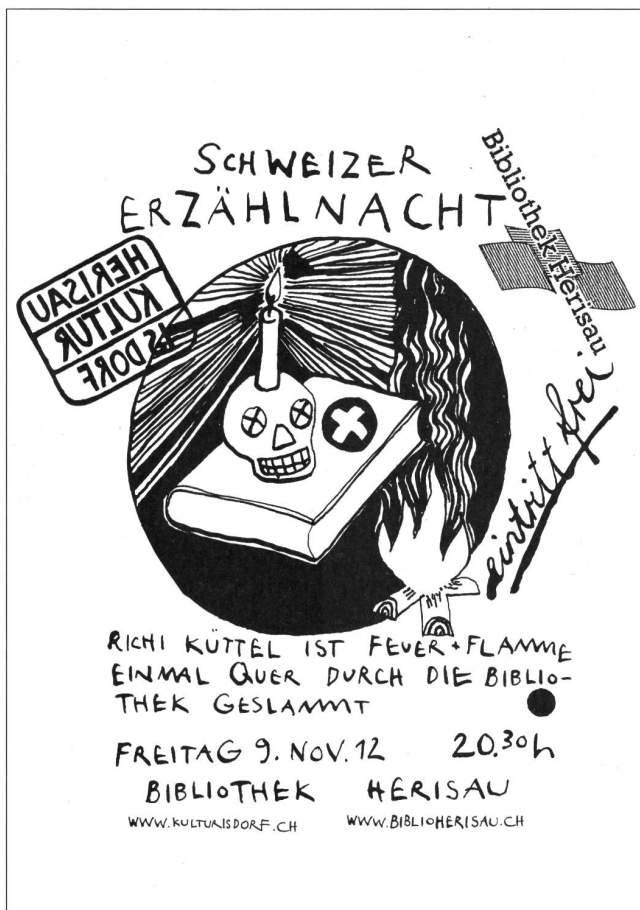 SCHWEIZER
ERZÄHLNACHT
Bibliothek Herisau
HERISAU
KULTUR
IS DORF
eintritt frei
RICHI KÜTTEL IST FEUER + FLAMME
EINMAL QUER DURCH DIE BIBLIO-
THEK GESLAMMT
FREITAG 9. NOV. 12 20.30h
BIBLIOTHEK HERISAU
WWW.KULTURISDORF.CH WWW.BIBLIOHERISAU.CH